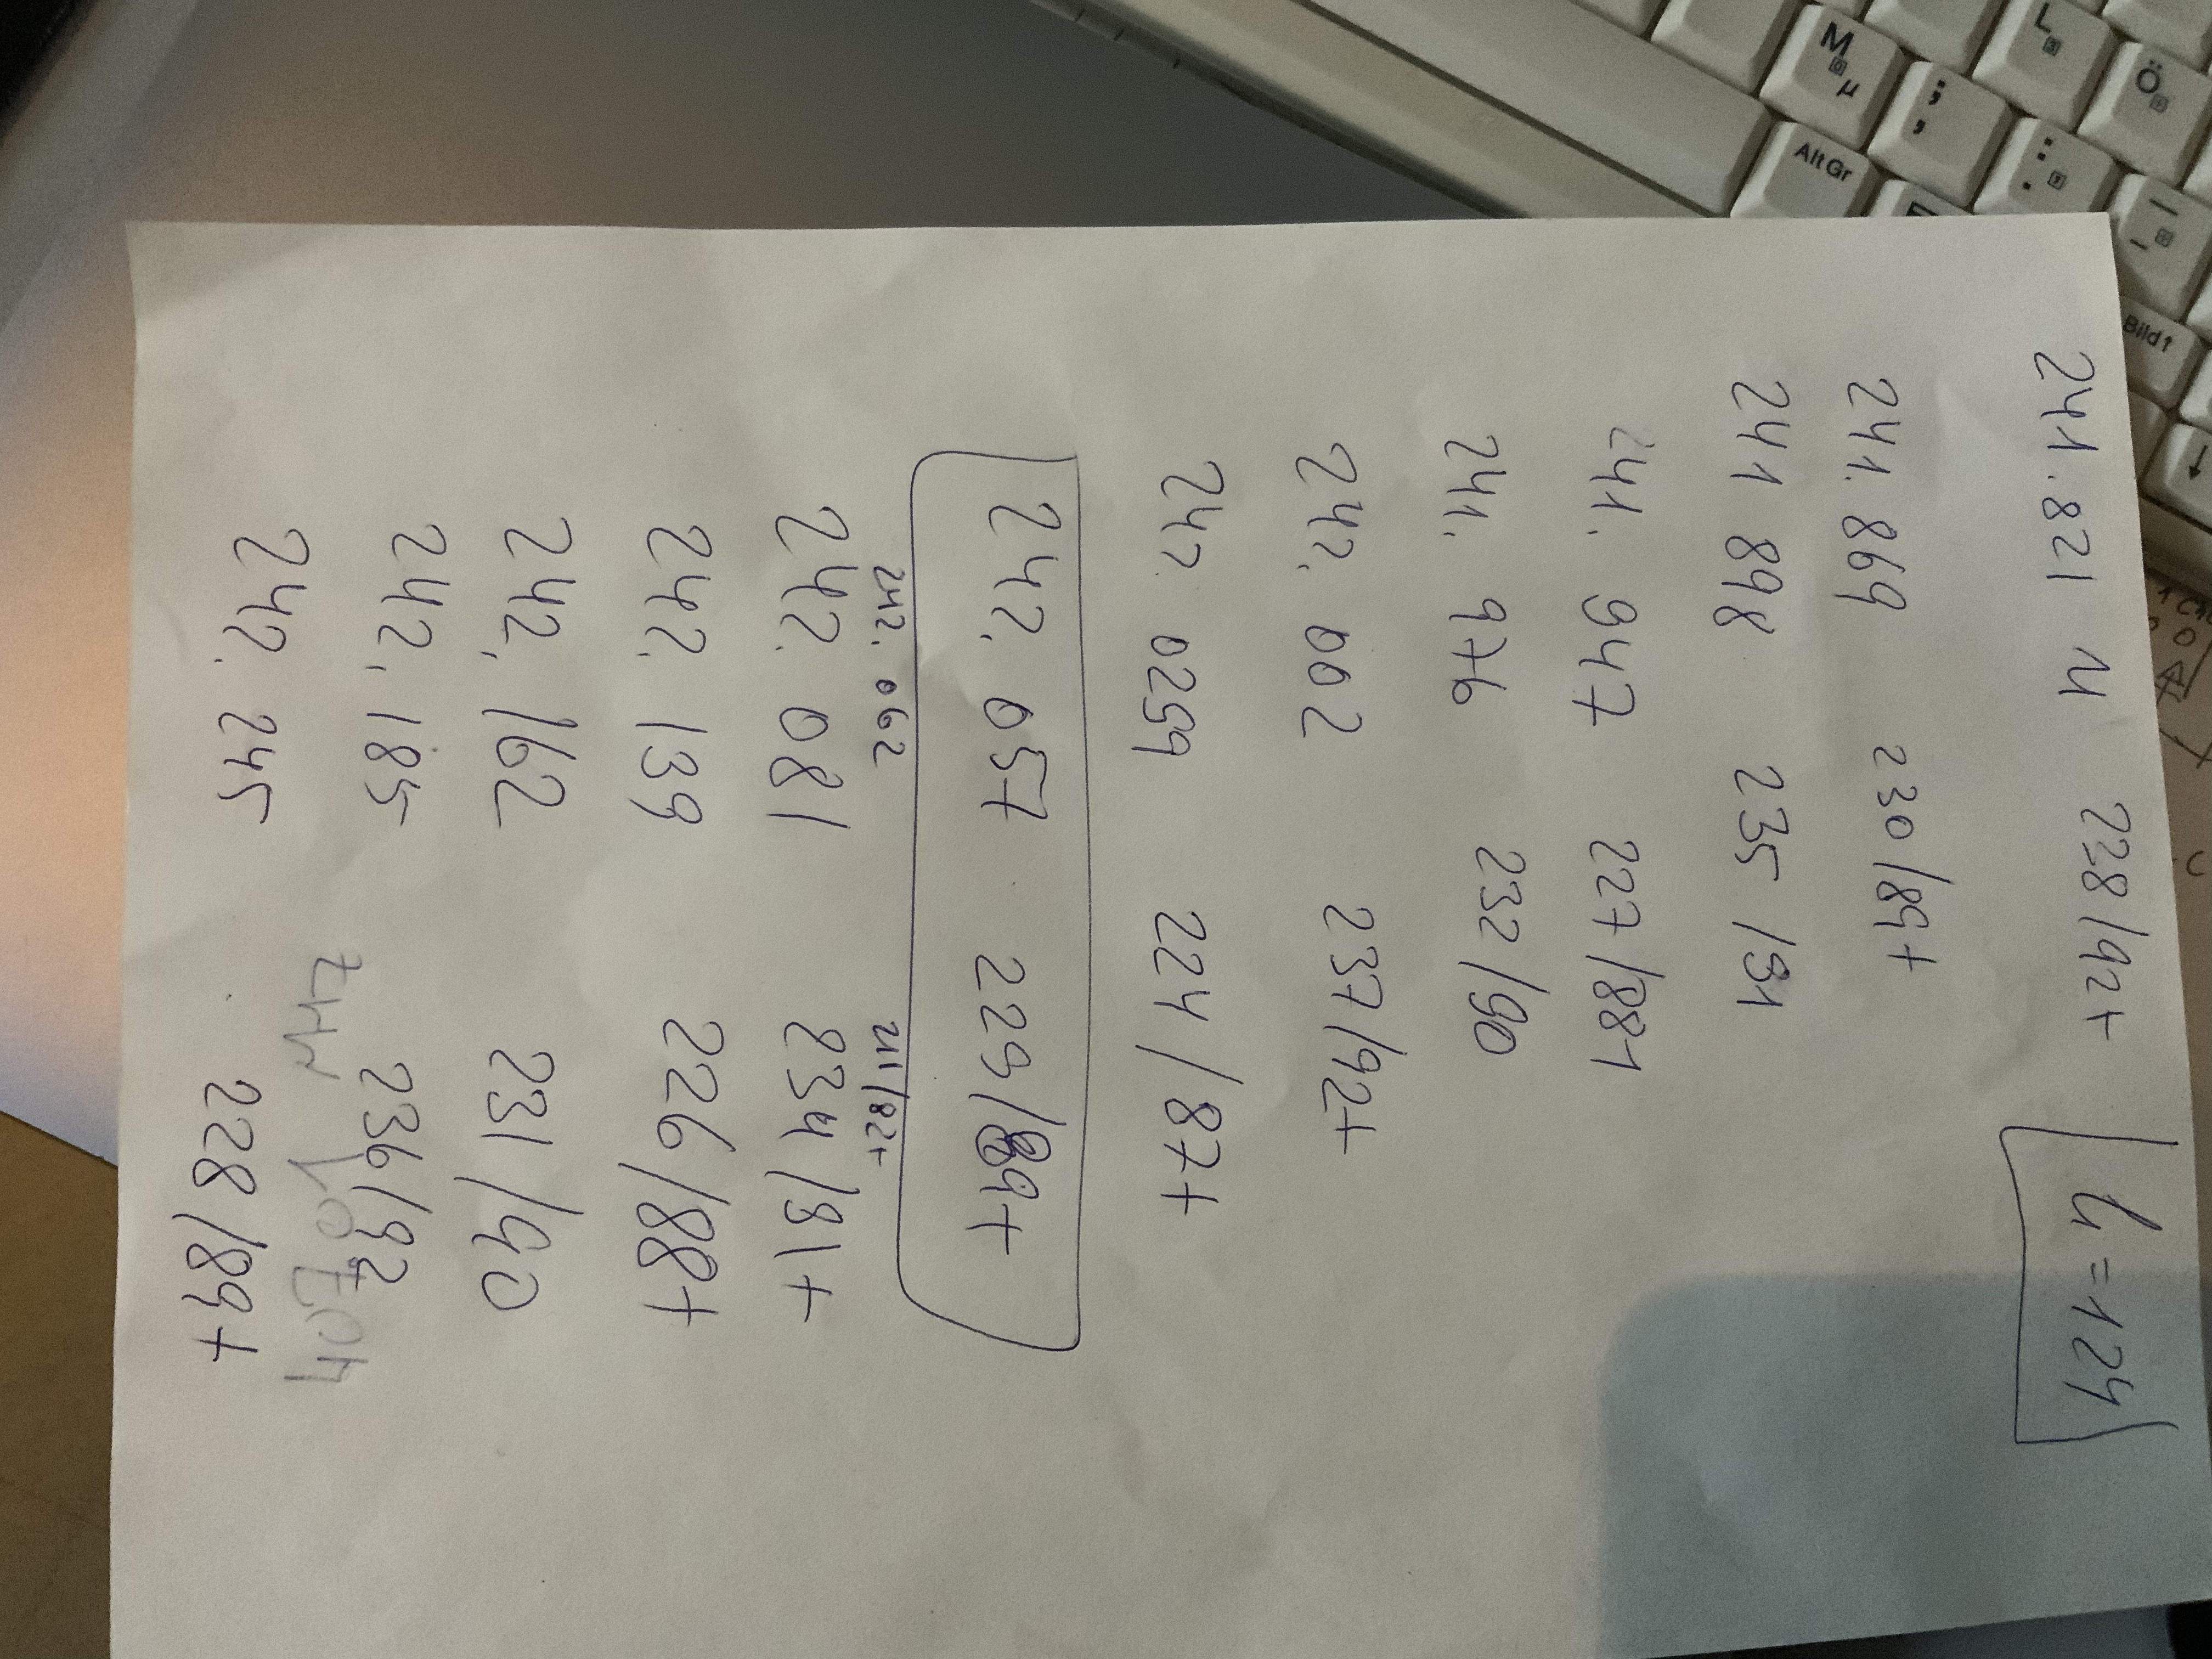 241.821 M 228/92+
h=124
241.869 230/89+
241 898 235/91
241.947 227/881
241.976 232/90
242.002 237/92+
242.0299 224/87+
242.057 229/89+
242.062 211/82+
242.081 234/91+
242.139 226/88+
242.162 231/90
242.185 236/92
242.245 228/89+
M
µ
L
Ö
;
,
:
.
AltGr
Bild↑